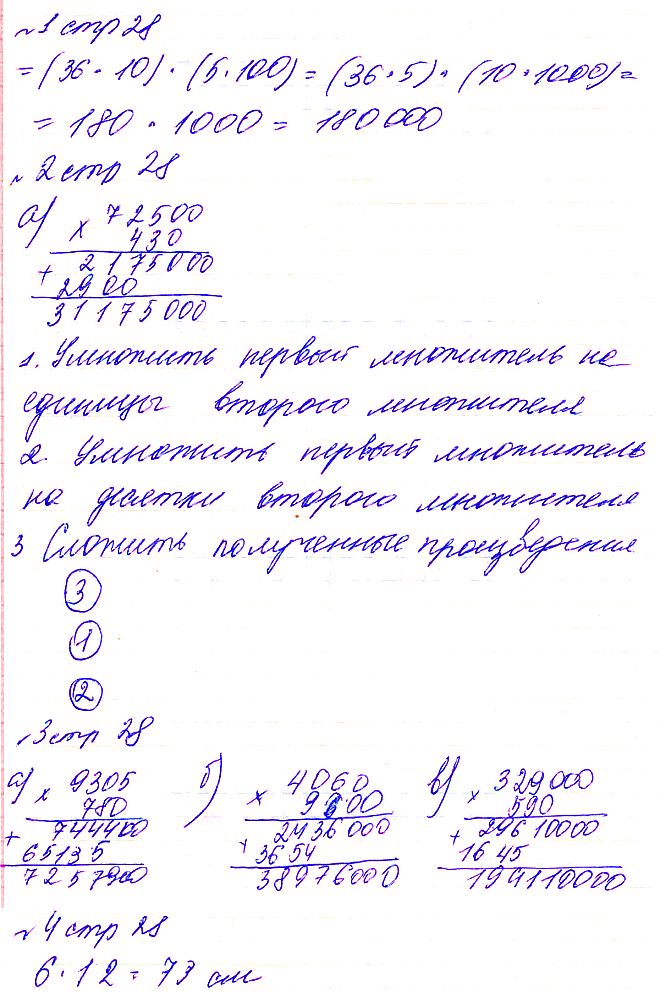 №1 стр 28
= (36 · 10) · (5 · 100) = (36 · 5) · (10 · 1000) =
= 180 · 1000 = 180 000
№2 стр 28
а) × 72500
430
+ 2175000
2900
31175000
1. Умножить первый множитель на
единицы второго множителя
2. Умножить первый множитель
на десятки второго множителя
3 Сложить полученные произведения
3
1
2
№3 стр 28
а) × 9305
780
+ 744400
65135
7257900
б) × 4060
9600
+ 2436000
3654
38976000
в) × 329000
590
+ 29610000
1645
194110000
№4 стр 28
6 · 12 = 73 см